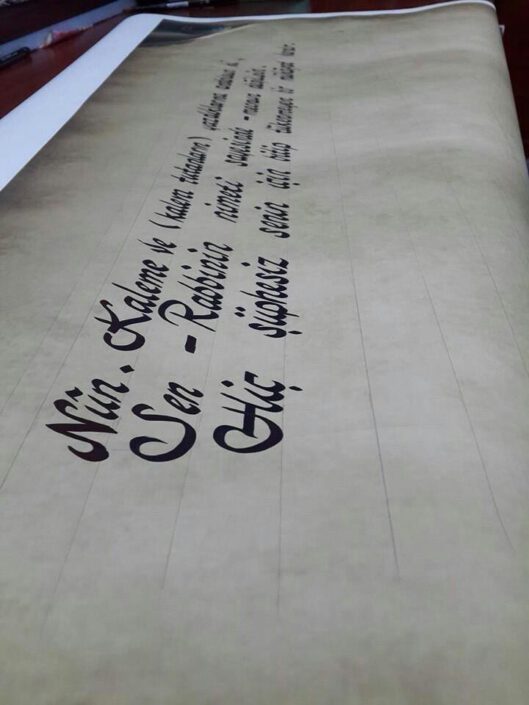 Nûn. Kaleme ve (kalem tutanların) yazdıklarına andolsun ki,
Sen - Rabbinin nimeti sayesinde - mecnun değilsin.
Hiç şüphesiz senin için bitip tükenmeyen bir mükâfat